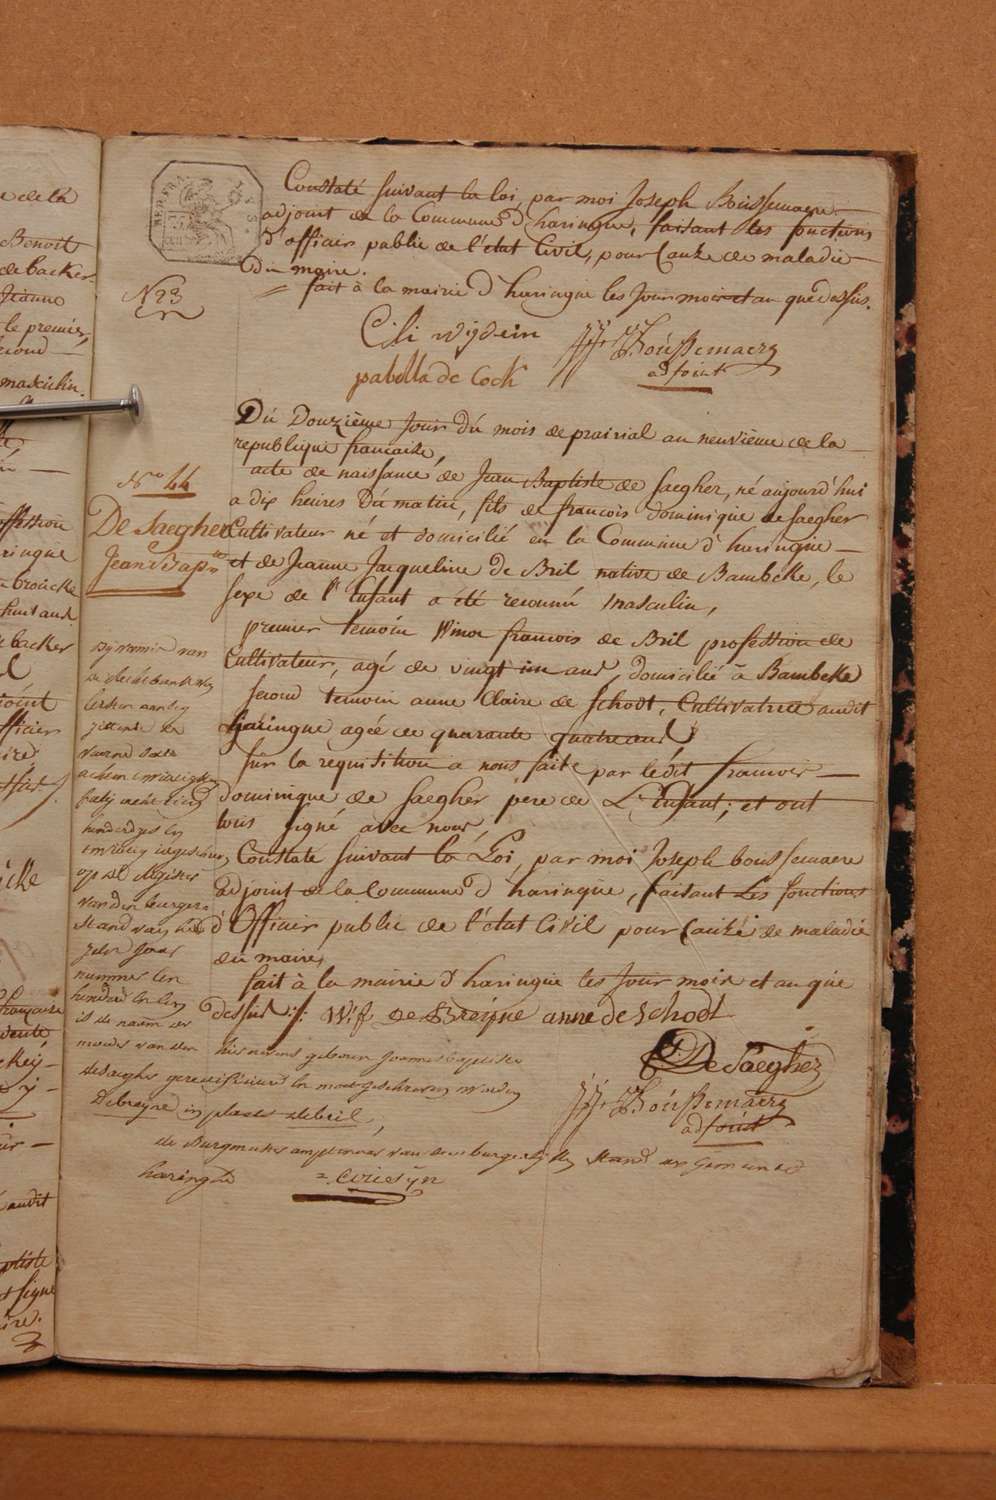 Constaté suivant la loi, par moi Joseph Boussemaere
adjoint de la Commune d'haringue, faisant les fonctions
d'officier public de l'état Civil, pour Cause de maladie
du maire.
fait à la mairie d'haringue les Jour mois et an que dessus.
N 23
pabolla de Cock
J. J. Boussemaere
adjoint
Du Douzième Jour du mois de prairial an neuvième de la
republique francaise,
acte de naissance de Jean Baptiste de Saegher, né aujourd'hui
a dix heures du matin, fils de francois dominique de Saegher
Cultivateur né et domicilié en la Commune d'haringue
et de Jeanne Jacqueline De Bril native de Bambeke, le
sexe de l'Enfant a été reconnu masculin,
premier temoin Winoc francois de Bril profession de
Cultivateur, agé de vingt un ans, domicilié à Bambeke
second temoin anne Claire de Schodt, Cultivatrice audit
haringue agée de quarante quatre ans
sur la requisition a nous faite par ledit francois
dominique de Saegher pere de L'Enfant; et ont
tous signé avec nous,
Constaté suivant la Loi, par moi Joseph boussemaere
adjoint de la Commune d'haringue, faisant les fonctions
d'Officier public de l'état Civil pour Cause de maladie
du maire,
fait à la mairie d'haringue les Jour mois et an que
dessus :/: W: f De Breÿne anne de Schodt
De Saegher
J. J. Boussemaere
adjoint
No 44
De Saegher
Jean Bapte
bij vonnis van
achtien
honderd
op het register
van den burger
stand van het
zelve Jaar
nummer
honderd
is de naam der
moeder van den
hier nevens geboren Joannes Baptiste
deSaegher gerectifieerd en moet geschreven worden
Debreyne in plaats debril,
de Burgmeester amptenaer van den burgerlyken Stand der Gemeente
haringhe